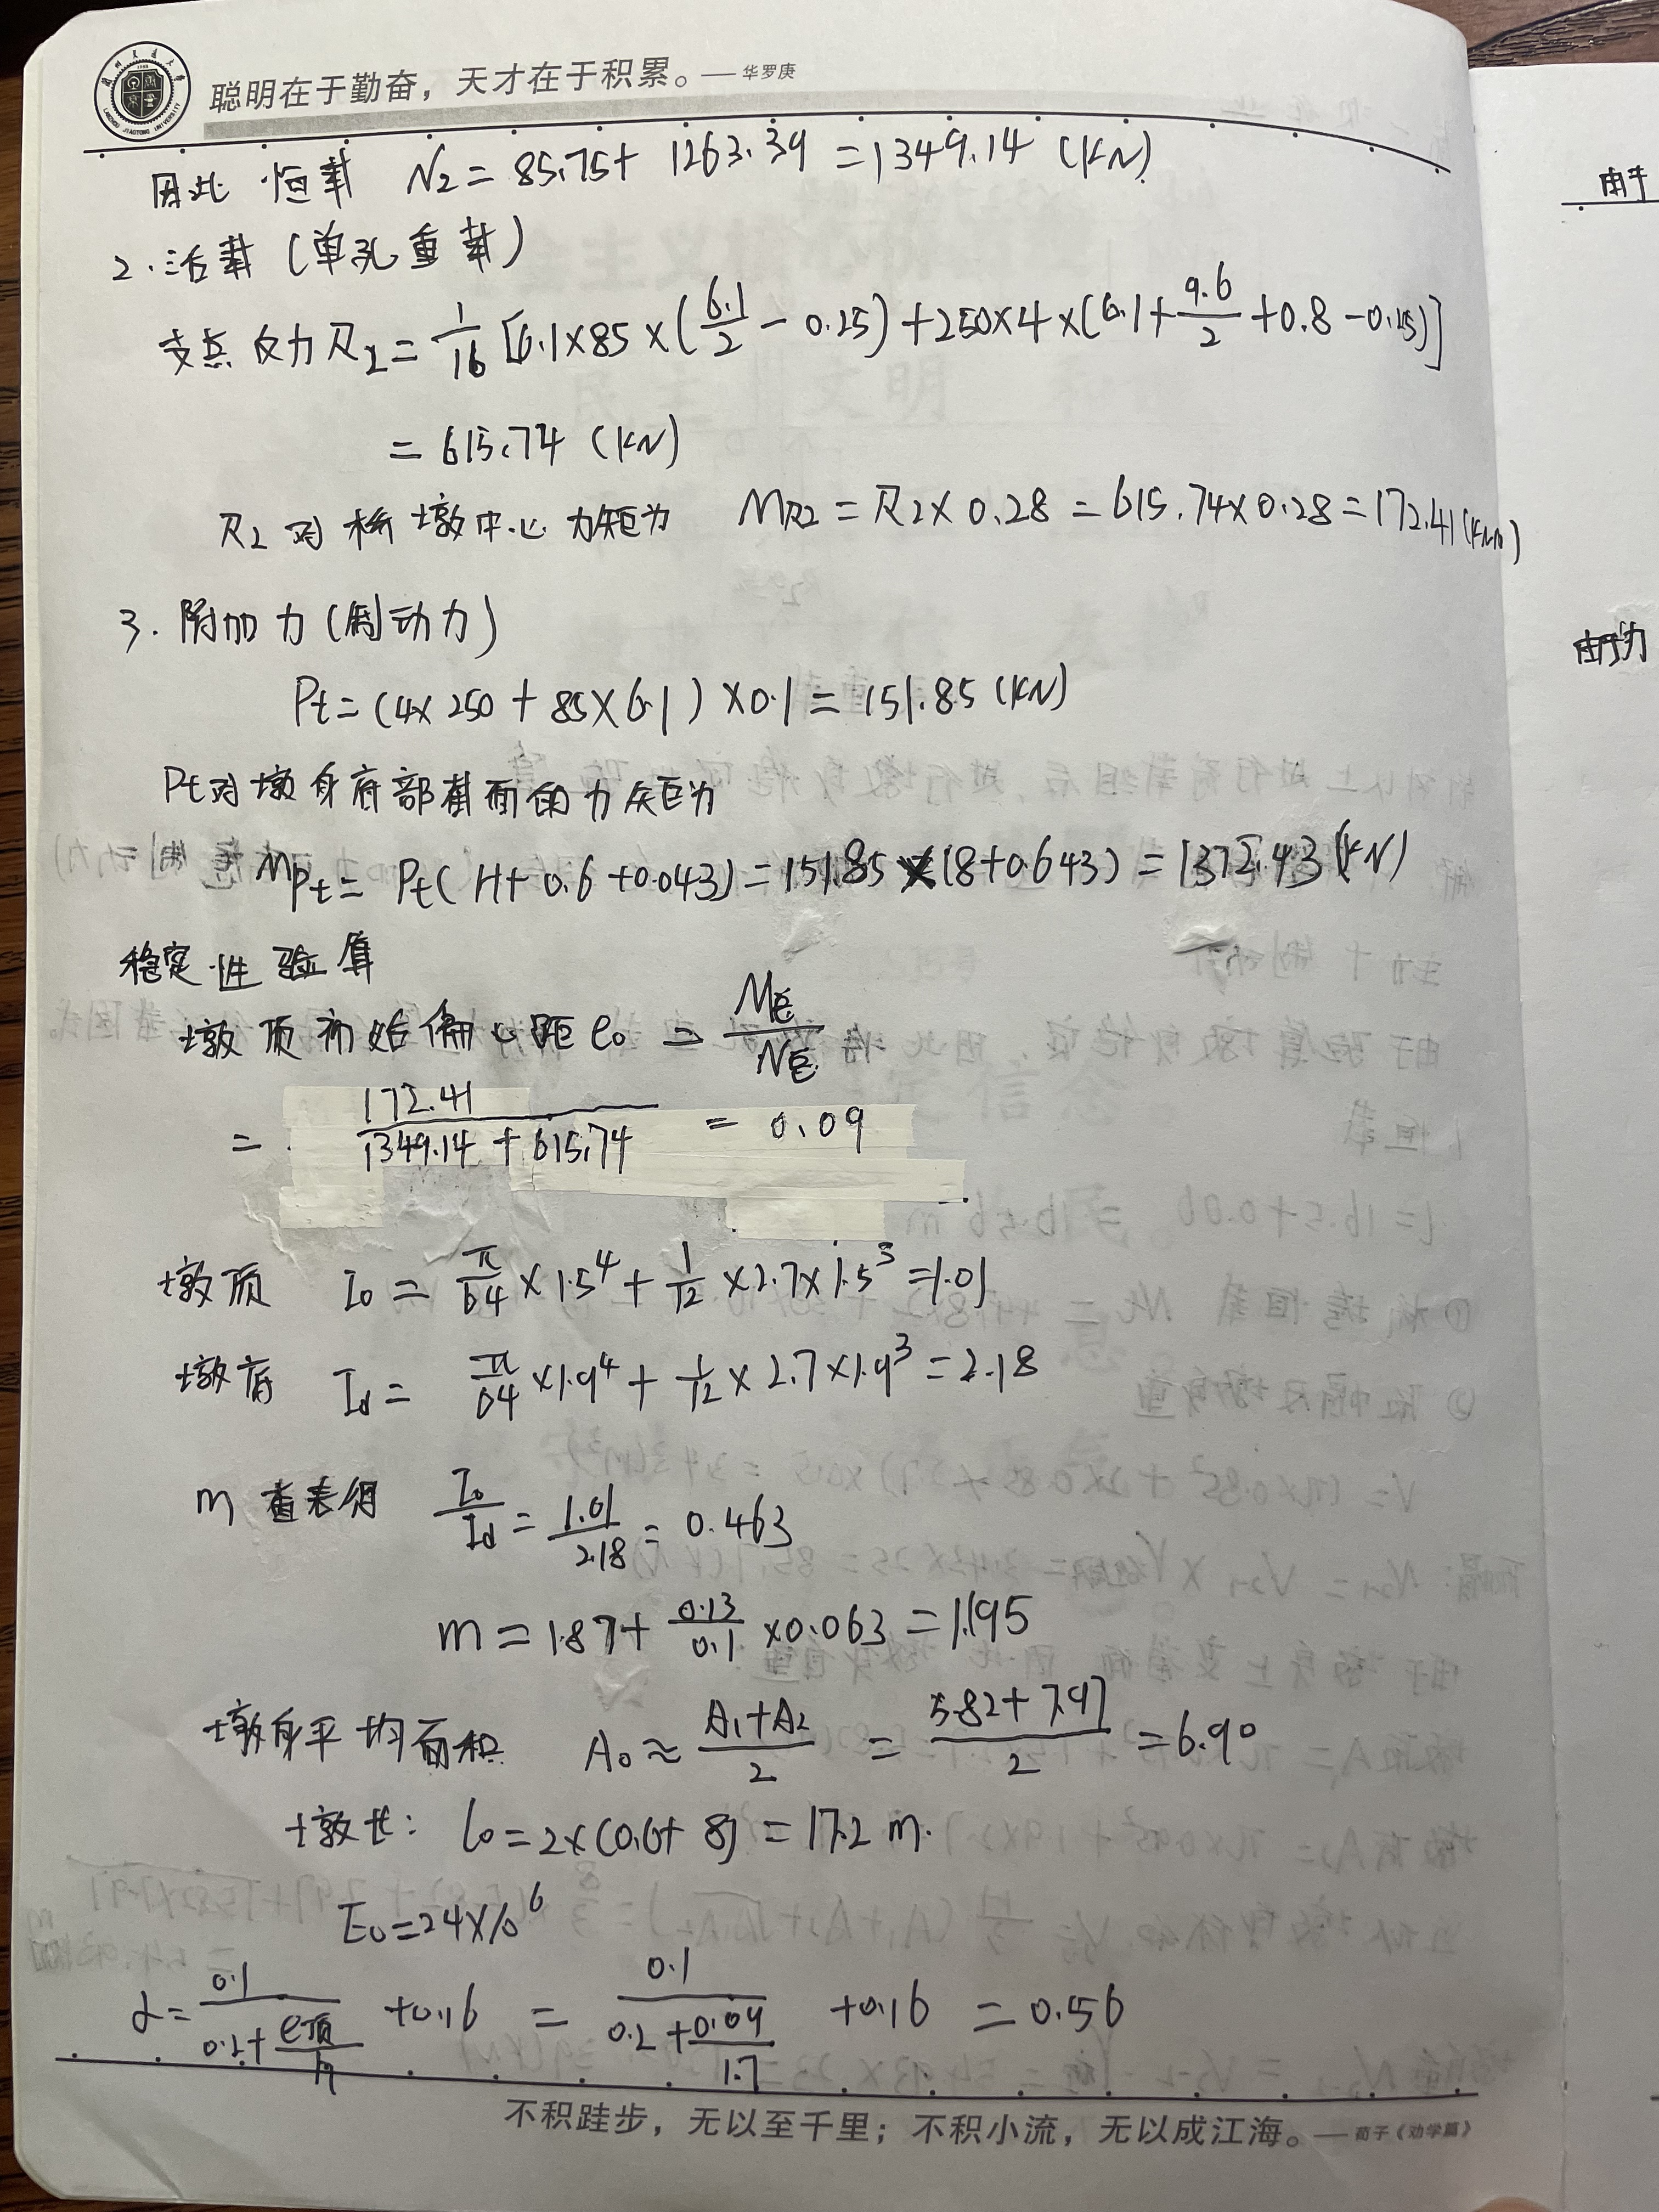 聪明在于勤奋，天才在于积累。——华罗庚
因此 恒载 N2 = 85.75 + 1263.39 = 1349.14 (KN)
2. 活载 (单孔重载)
支点反力 R2 = 1/16 [6.1×85×(6.1/2 - 0.25) + 250×4×(6.1 + 9.6/2 + 0.8 - 0.25)]
= 615.74 (KN)
R2 对桥墩中心力矩为 MR2 = R2×0.28 = 615.74×0.28 = 172.41 (KNm)
3. 附加力 (制动力)
Pt = (4×250 + 85×6.1)×0.1 = 151.85 (KN)
Pt对墩身底部截面的力矩为
MPt = Pt(H + 0.6 + 0.043) = 151.85×(8+0.643) = 1372.43 (KN)
稳定性验算
墩顶初始偏心距 e0 = M/N
= 172.41/(1349.14 + 615.74) = 0.09
墩顶 I0 = π/64 × 1.5^4 + 1/12 × 2.7 × 1.5^3 = 1.01
墩底 Id = π/64 × 1.9^4 + 1/12 × 2.7 × 1.9^3 = 2.18
m 查表得 I0/Id = 1.01/2.18 = 0.463
m = 1.87 + 0.13/0.1 × 0.063 = 1.95
墩身平均面积 A0 ≈ (A1+A2)/2 = (5.82+7.97)/2 = 6.90
墩长: l0 = 2×(0.6+8) = 17.2 m.
E0 = 24×10^6
α = 0.1/(0.2 + e顶/h) + 0.16 = 0.1/(0.2 + 0.09/1.7) + 0.16 = 0.56
不积跬步，无以至千里；不积小流，无以成江海。——荀子《劝学篇》
由于